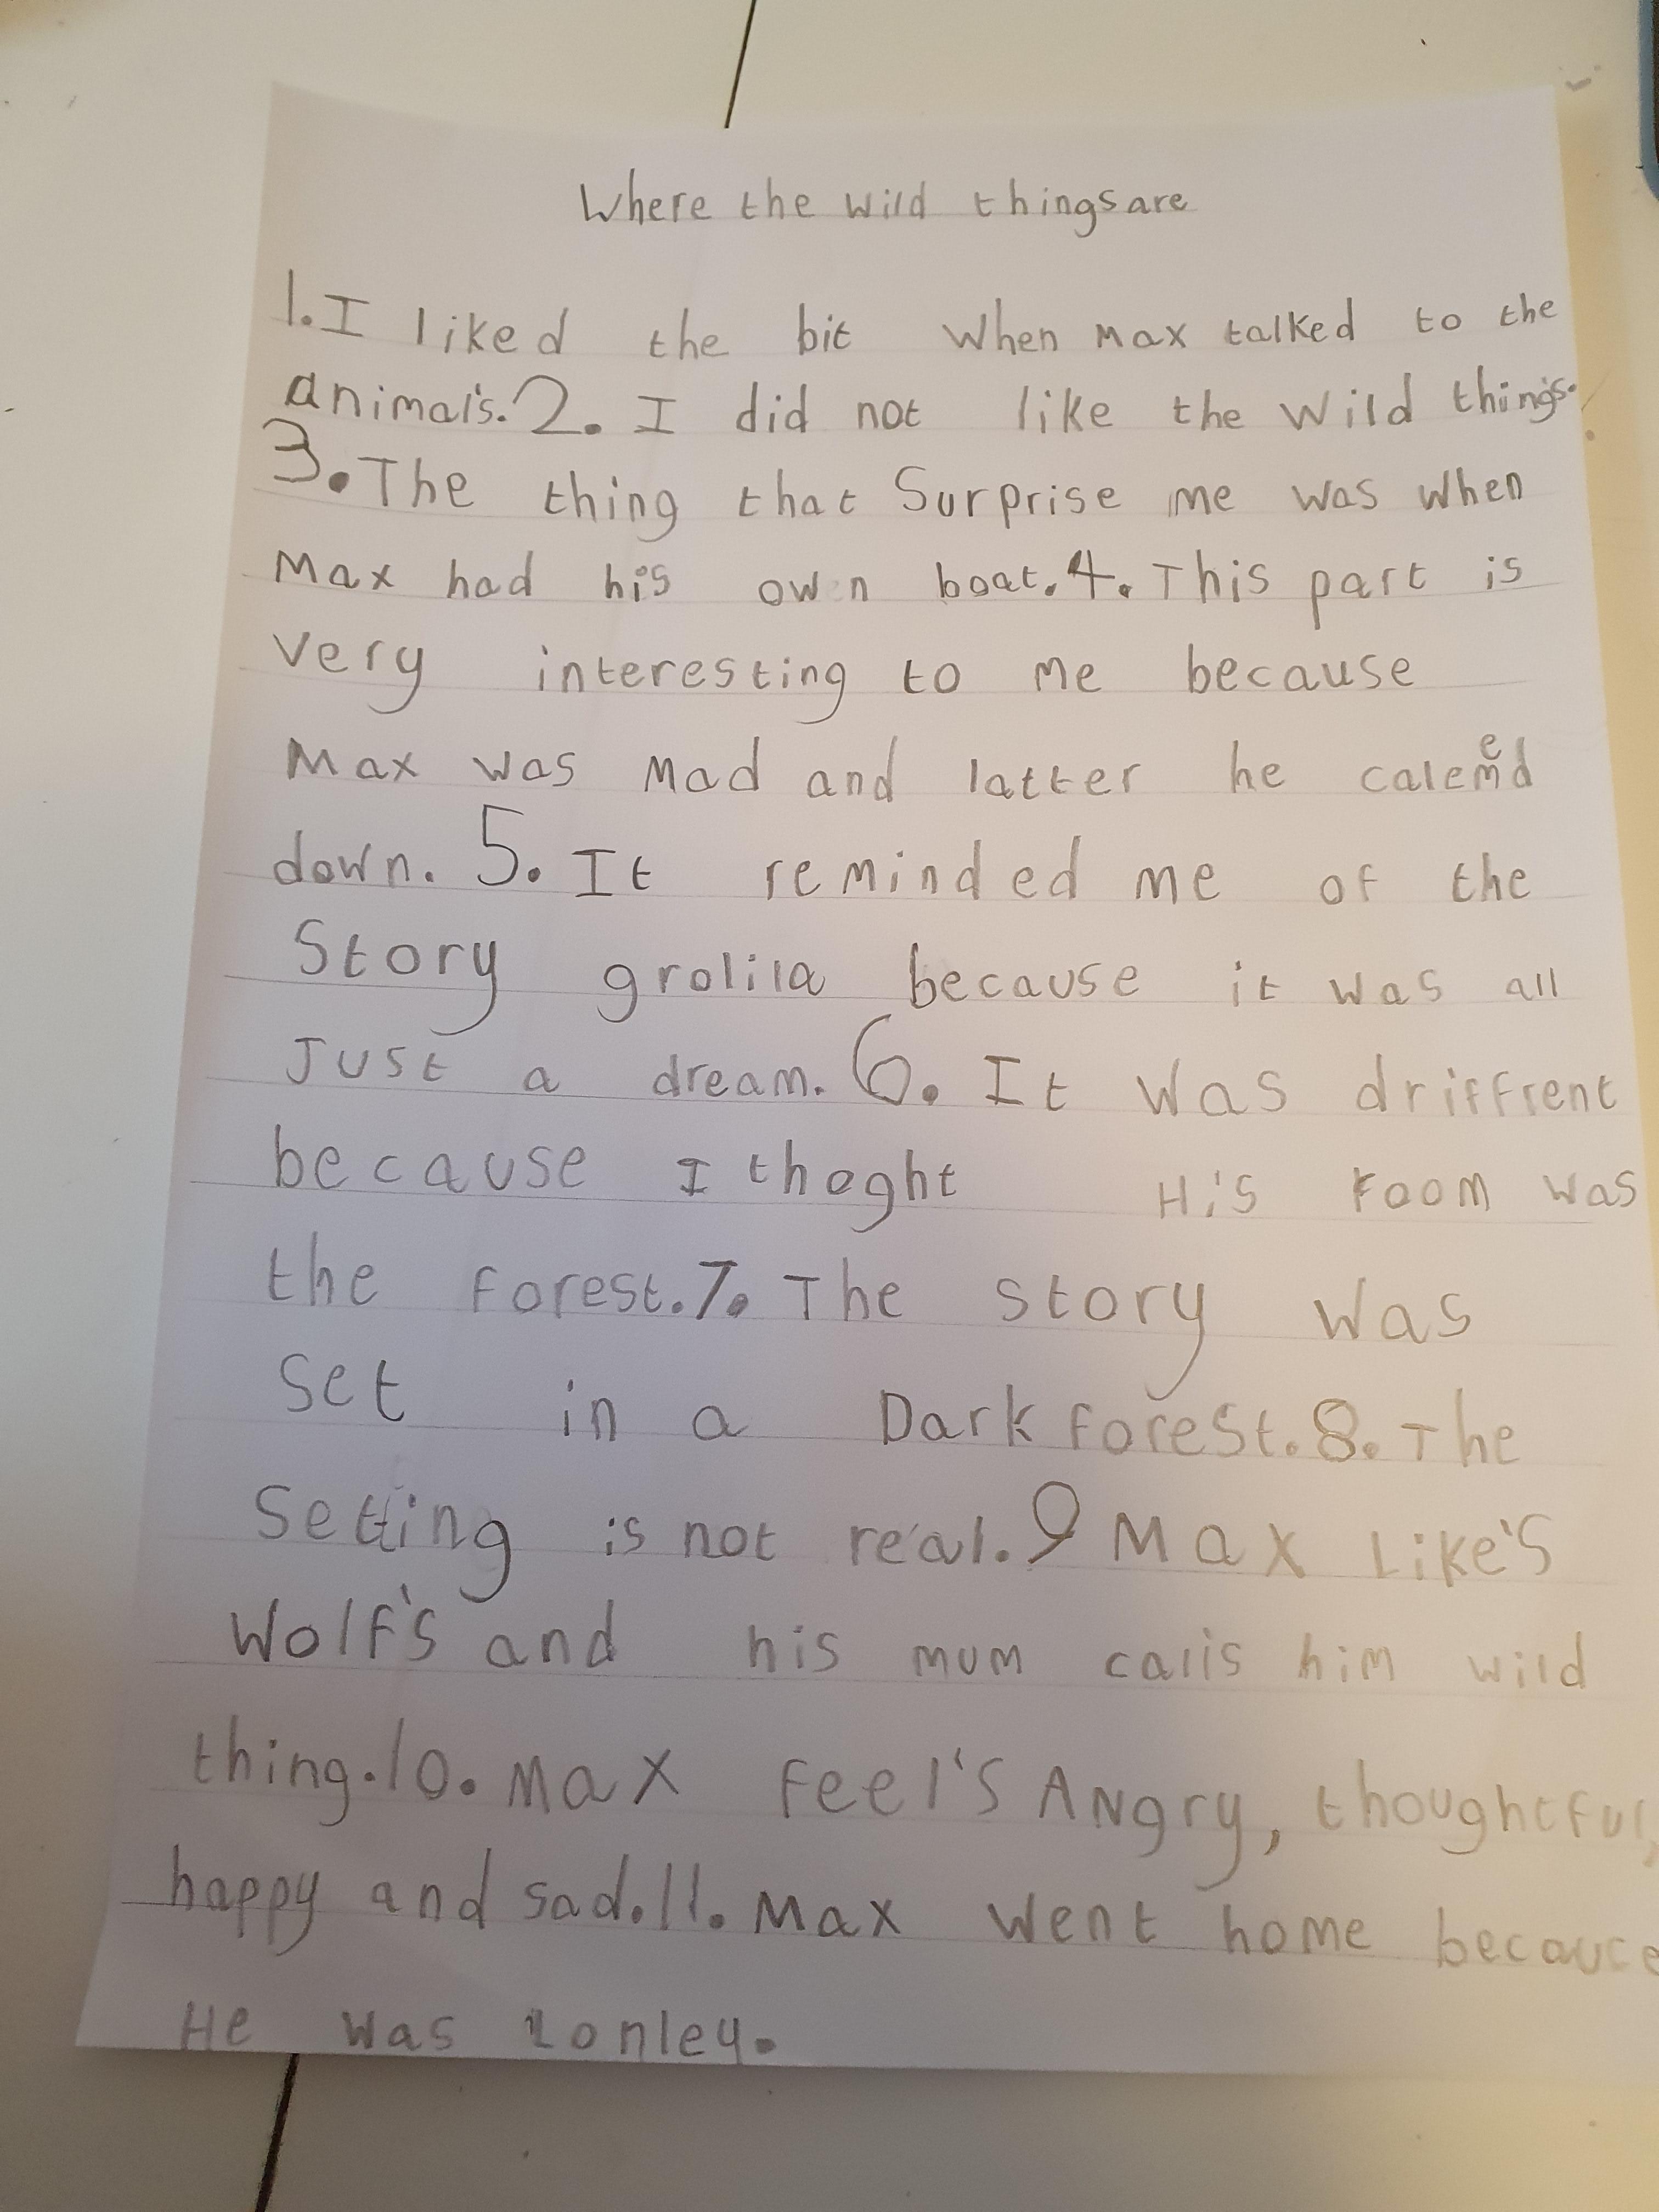 Where the wild things are
1. I liked the bit when Max talked to the
animal's. 2. I did not like the wild thing's.
3. The thing that Surprise me was when
Max had his own boat. 4. This part is
very interesting to me because
Max was mad and latter he calemed
down. 5. It reminded me of the
Story grolila because it was all
Just a dream. 6. It was driffrent
because I thoght His room was
the forest. 7. The story was
set in a Dark forest. 8. The
Setting is not real. 9 Max Like's
Wolf's and his mum calls him wild
thing. 10. Max feel's Angry, thoughtful,
happy and sad. 11. Max went home becauce
He was Lonley.